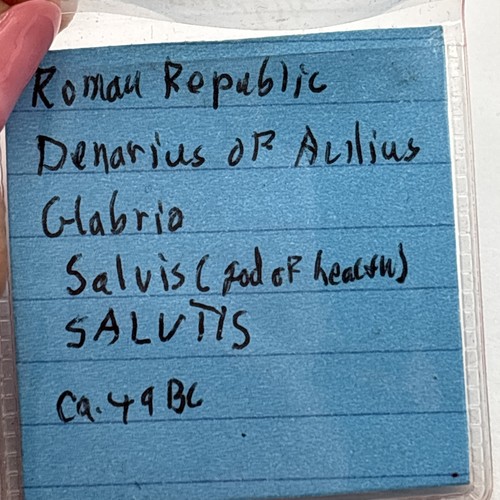 Roman Republic
Denarius of Acilius
Glabrio
Salvis (god of health)
SALVTIS
ca. 49 BC